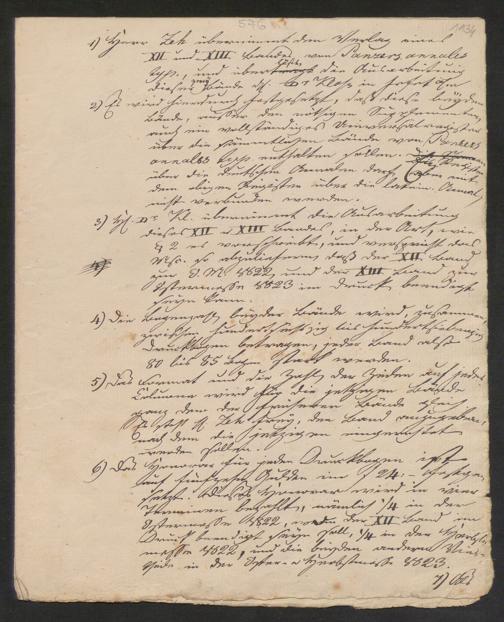 576
1) Herr Zeh übernimmt den Verlag eines
XII und XIII Bandes von Panzers annales
typ., und die Ausarbeitung
dieser Bände
2) Es wird hierdurch festgesetzt, daß diese beyden
Bände, außer den nöthigen Supplementen,
auch ein vollständiges Universalregister
über die sämmtlichen Bände von Panzers
annales typ. enthalten sollen.
über die deutschen Annalen darf mit
dem obigen Register über die latein. Annal.
nicht verbunden werden.
3) H. Dr. Kl. übernimmt die Ausarbeitung
dieses XII u XIII Bandes, in der Art, wie
§ 2 es vorschreibt, und verspricht das
Msc. so abzuliefern, daß der XII Band
zur O. M. 1822, und der XIII Band zur
Ostermesse 1823 im Druck beendigt
seyn kann.
4) Die Bogenzahl beyder Bände wird, zusammen,
zwischen hundertsechzig bis hundertsiebenzig
Druckbogen betragen, jeder Band also
80 bis 85 Bogen stark werden.
5) Das Format und die Zahl der Zeilen auf jeder
Columne wird für die jetzigen Bände
ganz dem der früheren Bände gleich
H. Zeh den Band
nach dem die jetzigen eingerichtet
werden sollen.
6) Das Honorar für jeden Druckbogen ist
auf fünfzehn Gulden im f 24.- festge-
setzt. Dieses Honorar wird in vier
Terminen bezahlt, nämlich 1/4 in der
Ostermesse 1822, wo der XII Band im
Druck beendigt seyn soll, 1/4 in der Herbst-
messe 1822, und die beyden andern Vier-
theile in der Oster- u Herbstmesse 1823.
7) Das